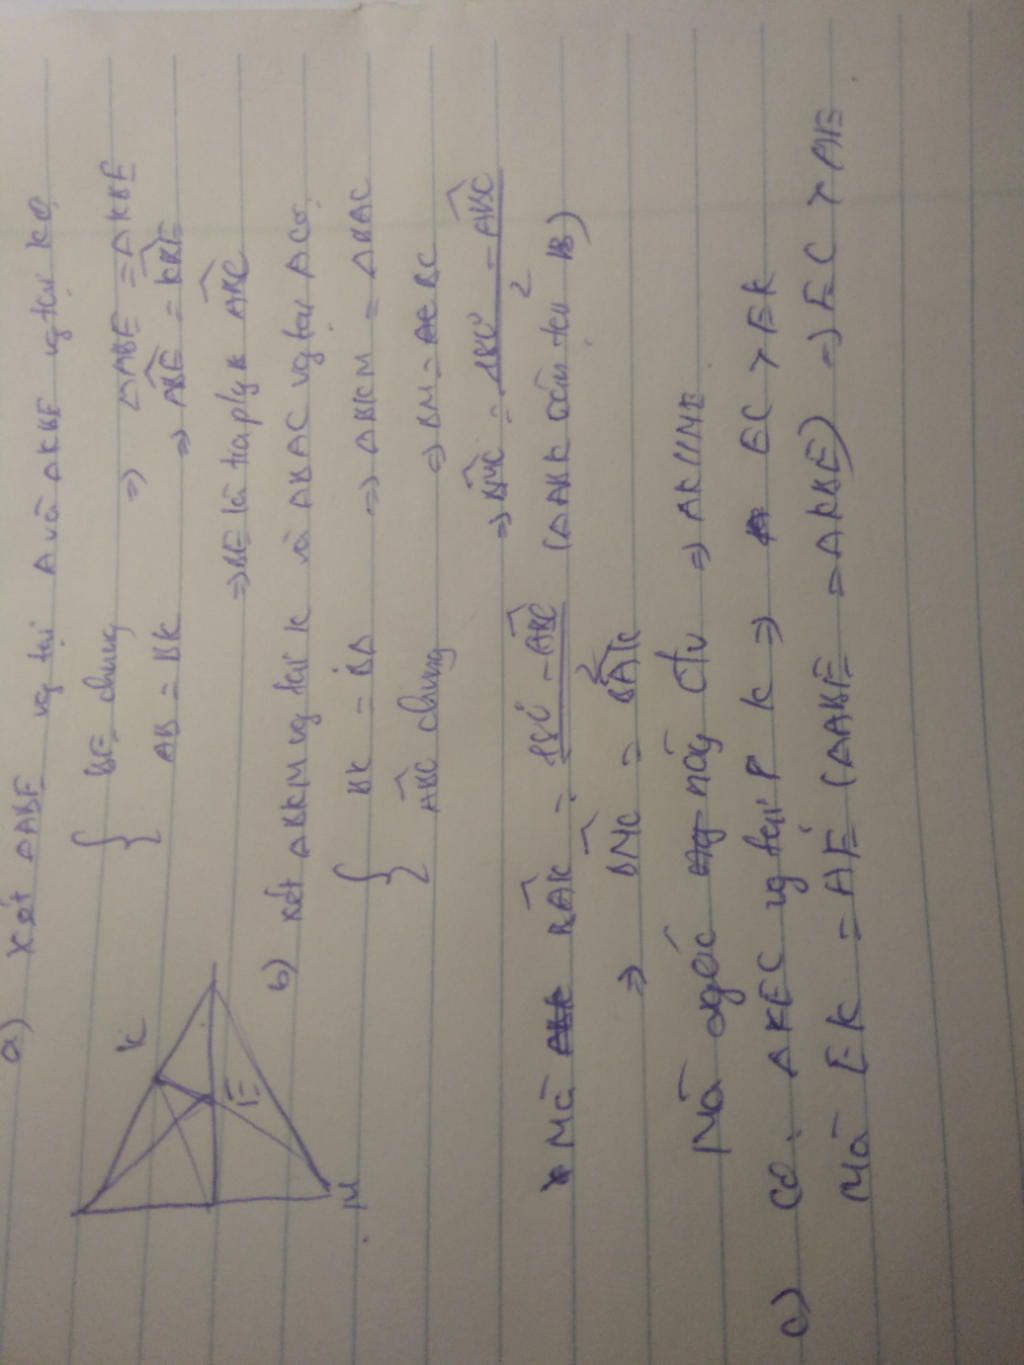 a) Xét ΔABE vg tại A và ΔKBE vg tại K có
{ BE chung
AB = BK
⇒ ΔABE = ΔKBE
⇒ ABE = KBE
⇒ BE là tia plg ABC
b) Xét ΔBKM vg tại K và ΔBAC vg tại A có
{ BK = BA
ABC chung
⇒ ΔBKM = ΔBAC
⇒ BM = BC
⇒ BMC = 180° - ABC / 2
Mà BAK = 180° - ABC / 2 (ΔABK cân tại B)
⇒ BMC = BAK
Mà 2 góc này đ/v ⇒ AK // MC
c) Có ΔKEC vg tại K ⇒ EC > EK
Mà EK = AE (ΔABE = ΔKBE) ⇒ EC > AE
K
E
M